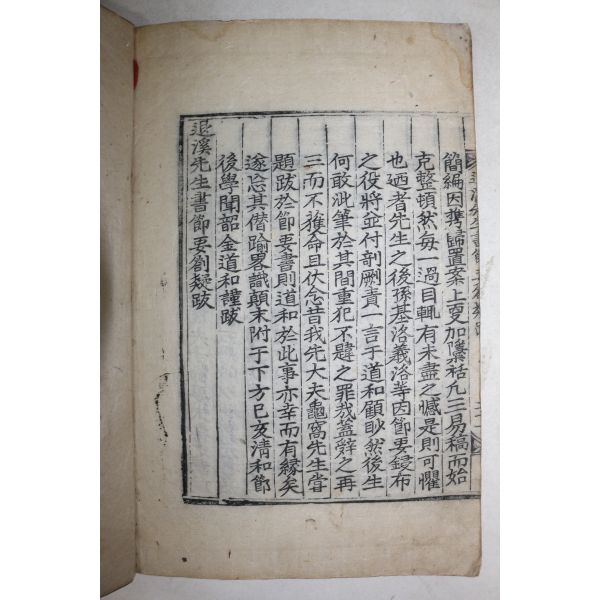 簡編因携歸置案上更加檃栝凡三易稿而始
克整頓然每一過目輒有未盡之憾是則可懼
也廼者先生之後孫基洛羲洛等因節要鋟布
之役將並付剞劂責一言于道和顧眇然後生
何敢泚筆於其間重犯不韙之罪哉葢辭之再
三而不獲命且伏念昔我先大夫龜窩先生嘗
題跋於節要書則道和於此事亦幸而有緣矣
遂忘其僭踰畧識顚末附于下方己亥淸和節
後學聞韶金道和謹跋
退溪先生書節要劄疑跋